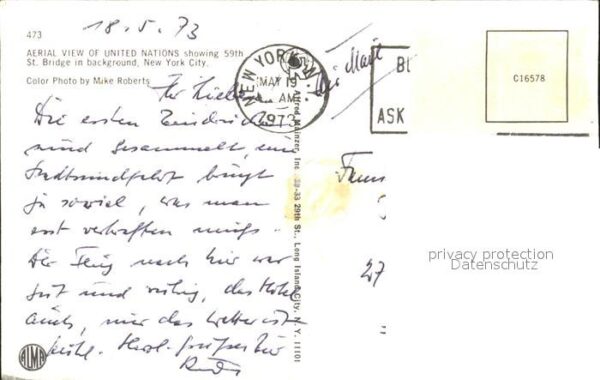 18.5.73
473
AERIAL VIEW OF UNITED NATIONS showing 59th
St. Bridge in background, New York City.
Color Photo by Mike Roberts
Ihr Lieben
Die ersten Eindrücke
sind gesammelt, eine
Stadtrundfahrt bringt
ja soviel, was man
erst verkraften muß.
Der Flug nach hier war
gut und ruhig, das Hotel
auch, nur das Wetter ist
kühl. Herzl. Grüße
ALMA
Alfred Mainzer, Inc. 39-33 29th St., Long Island City, N. Y. 11101
NEW YORK, N.Y.
MAY 19
AM
1973
Air Mail
ASK
C16578
Fam
27
privacy protection
Datenschutz